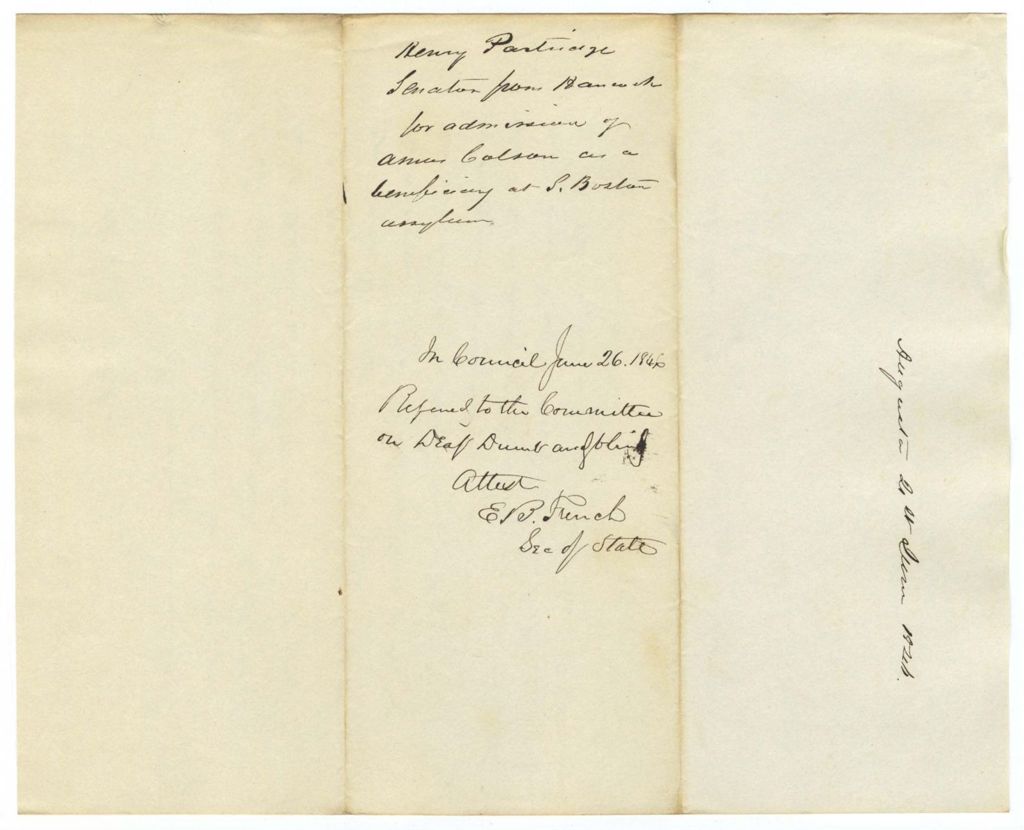 Henry Partridge
Senator from Hancock
for admission of
Amos Colson as a
beneficiary at S. Boston
assylum
In Council June 26. 1846
Referred to the Committee
on Deaf Dumb and blind
Attest
E B. French
Sec of State
Augusta June 1846.